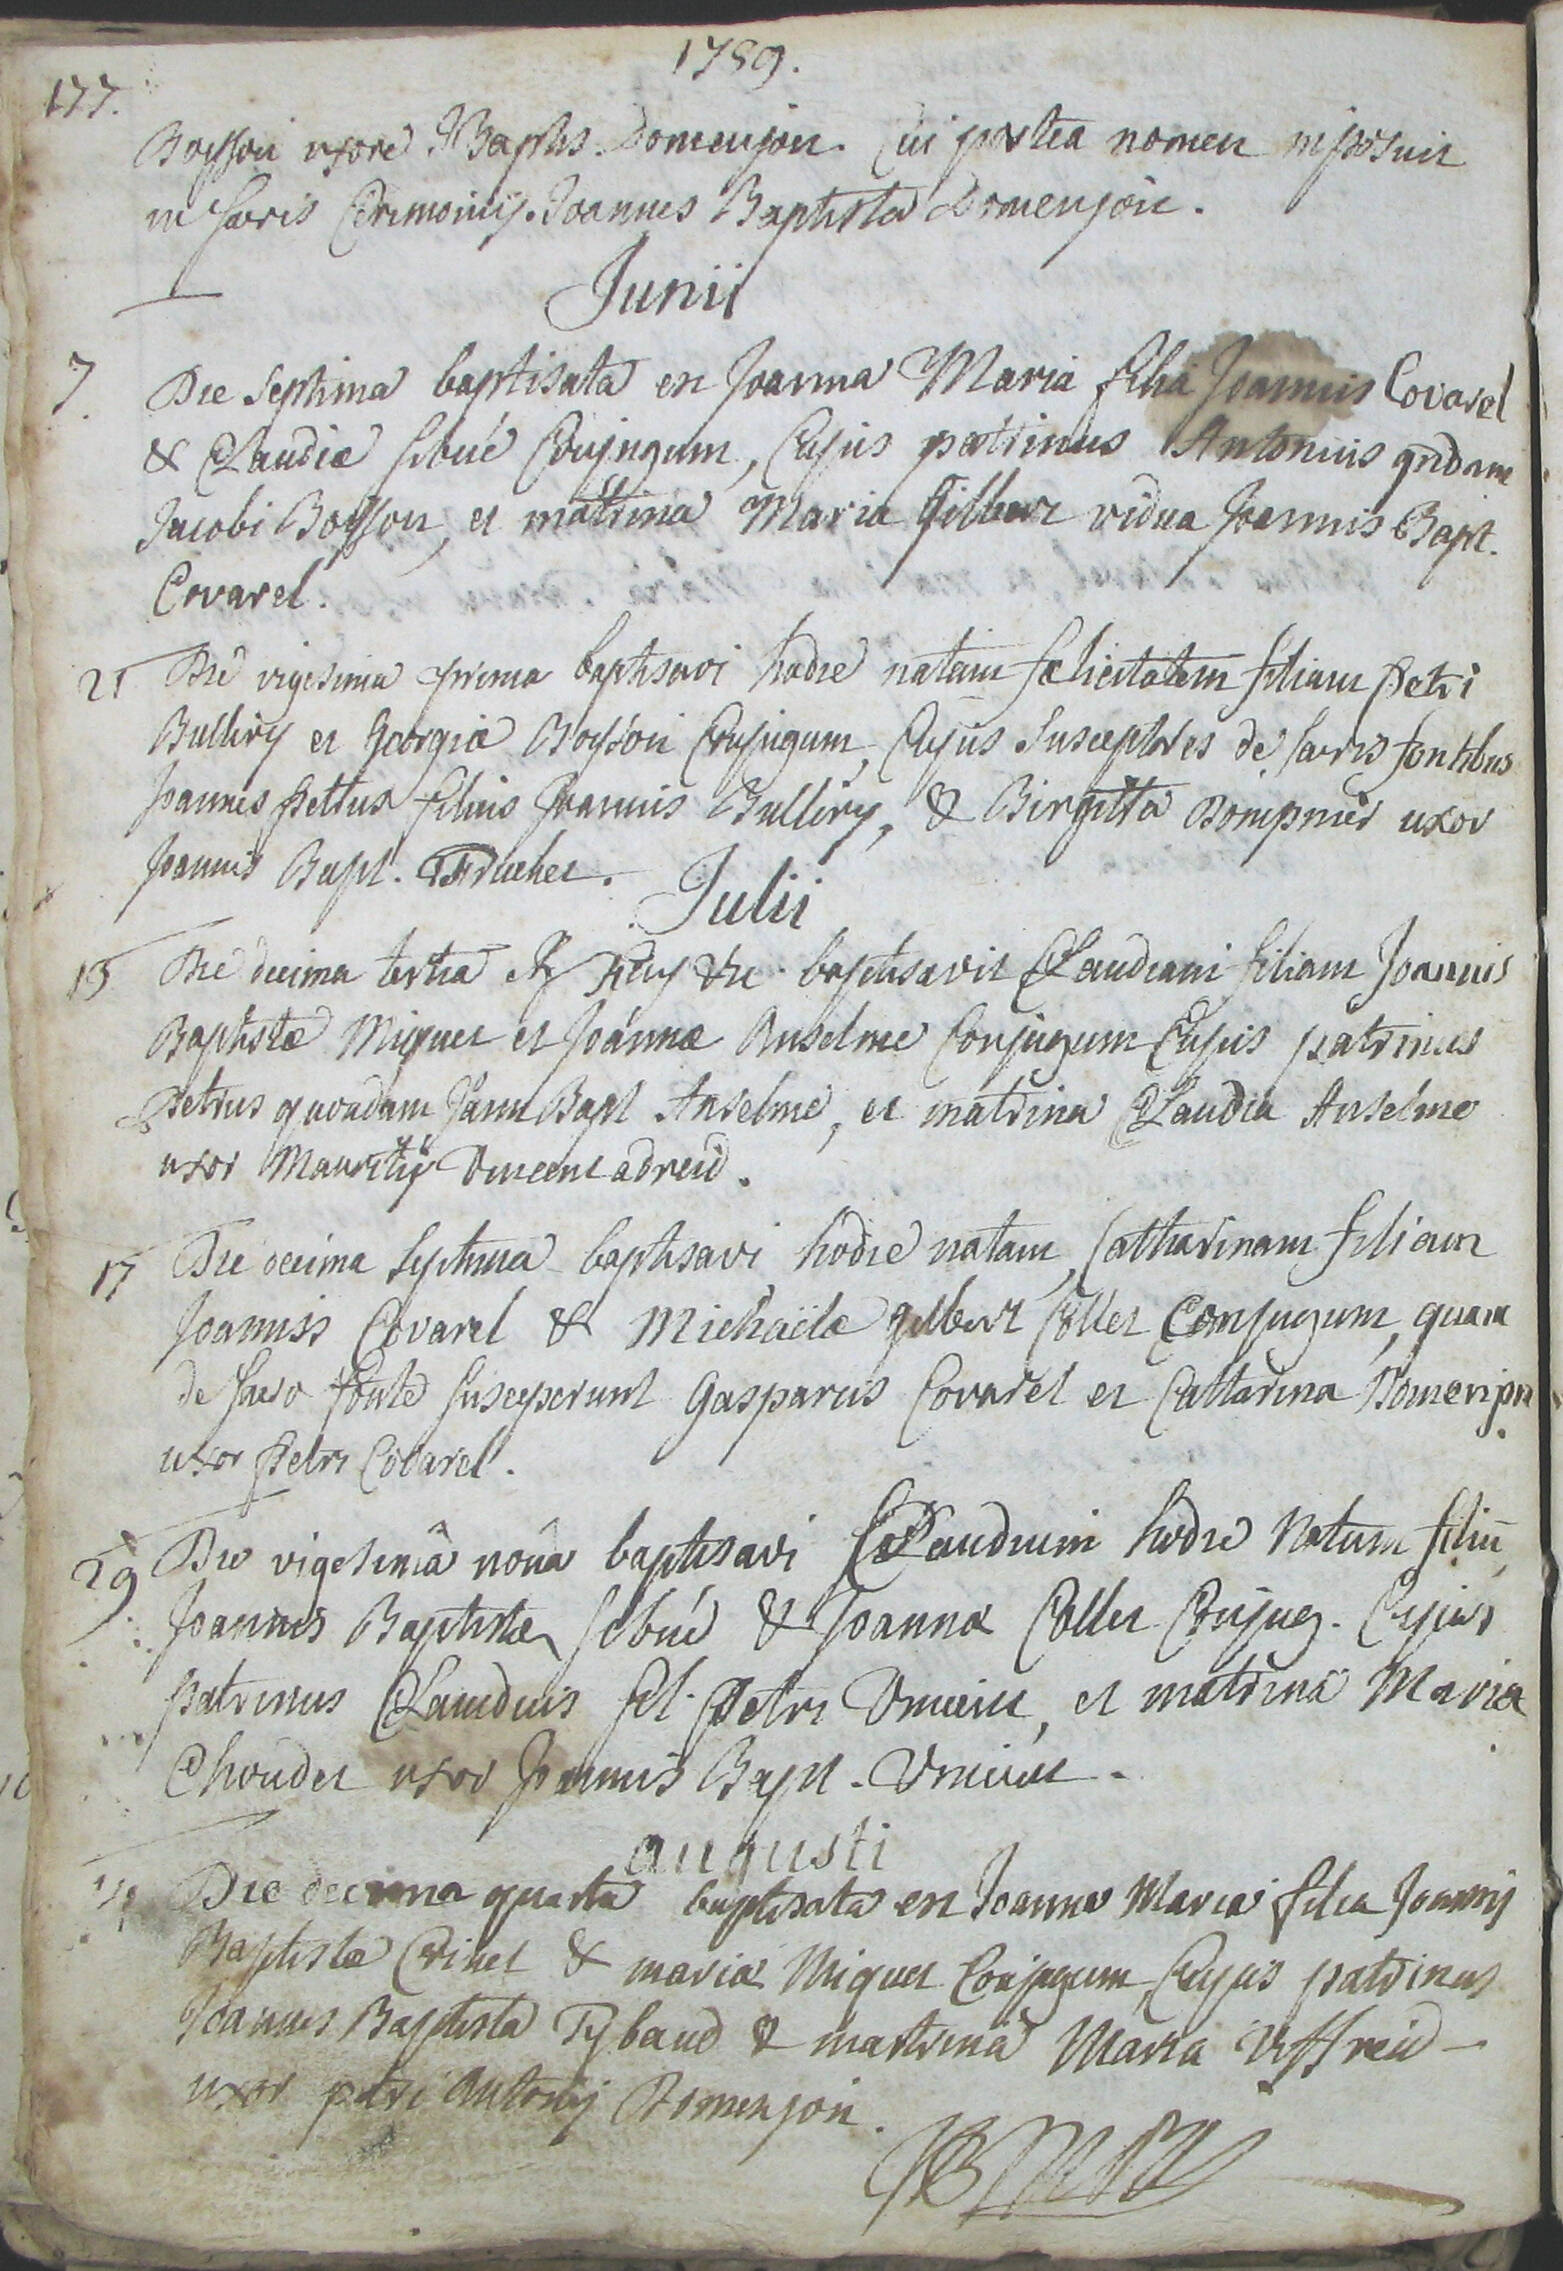 1789.
177.
Boysson uxore J Baptis. Domenjon. Cui postea nomen imposuit
in sacris Cerimoniis. Joannes Baptista Domenjon.
Junii
7. Die septima baptisata est Joanna Maria filia Joannis Covarel
& Claudiæ sibué Conjugum, Cujus patrinus Antonius qndam
Jacobi Boysson, et matrina Maria Gilbert vidua Joannis Bapt.
Covarel.
21 Die vigesima prima baptisavi hodie natam fælicitatem filiam Petri
Bulliry et Georgiæ Boysson Conjugum, Cujus Susceptores de sacris fontibus
Joannes Petrus filius Joannis Bulliry, & Birgitta Dompnier uxor
Joannis Bapt. Truchet.
Julii
13 Die decima tertia baptisavit Claudiam filiam Joannis
Baptistæ Miquet et Joannæ Anselme Conjugum Cujus patrinus
Petrus quondam Joann Bapt Anselme, et matrina Claudia Anselme
uxor Mauritij Vincent adreid.
17 Die decima septima baptisavi hodie natam, Catharinam filiam
Joannis Covarel & Michaëlæ gilbert Collet Conjugum, quam
de sacro fonte susceperunt Gasparus Covarel et Cattarina Domenjon
uxor Petri Covarel.
29 Die vigesimâ nonâ baptisavi Claudium hodie Natum filiū
Joannis Baptistæ sibué & Joannæ Collet Conjug. Cujus
patrinus Claudius fil. Petri Vincent, et matrina Maria
Choudet uxor Joannis Bapt. Vincent.
augusti
14 Die decima quarta baptisata est Joanna Maria filia Joannis
Baptistæ Crinel & mariæ Miquet Conjugum, Cujus patrinus
Joannes Baptista Tybaud & matrina Maria Uffreid
uxor petri Antonij Domenjon.